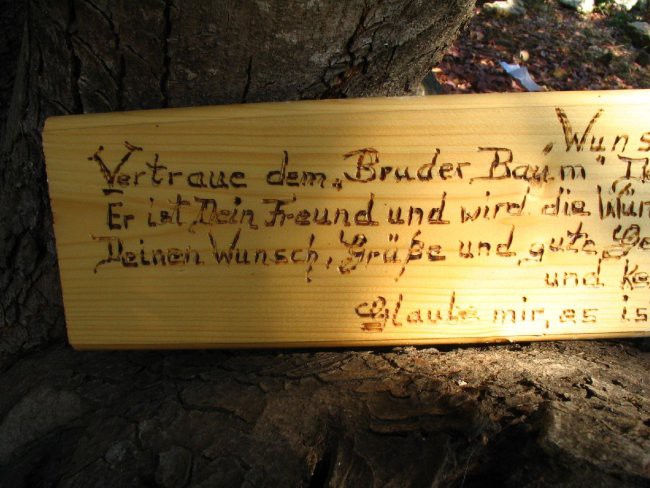 „Wuns
Vertraue dem „Bruder Baum“, De
Er ist Dein Freund und wird die Wün
Deinen Wunsch, Grüße und gute Ge
und Ke
Glaube mir, es is